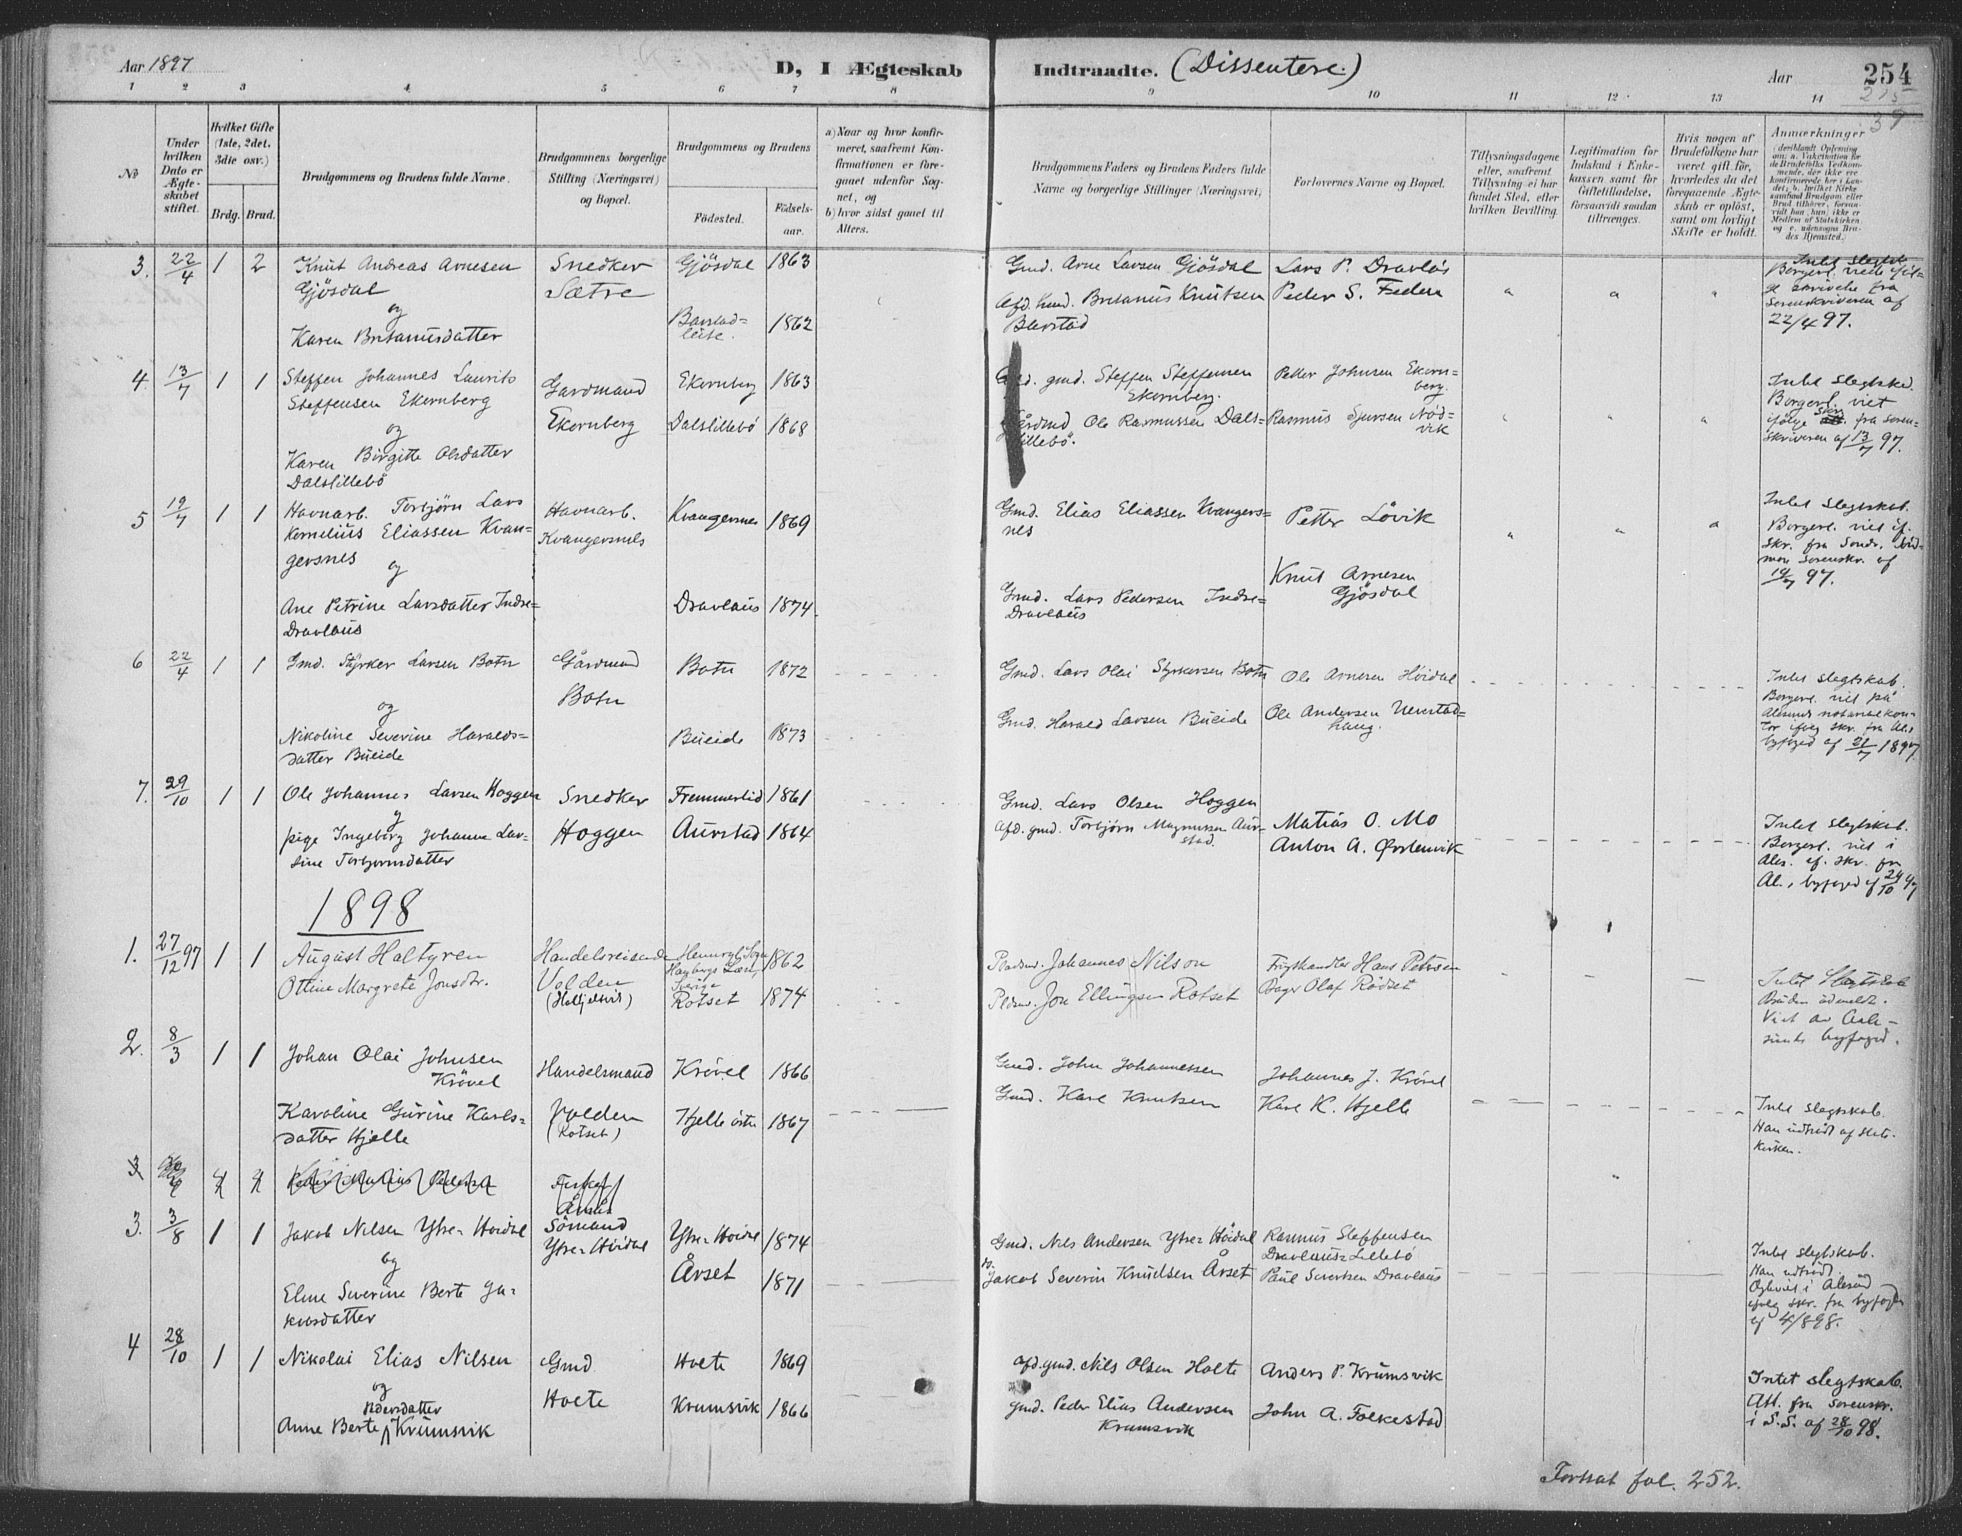 Aar 1897
D, I Ægteskab Indtraadte. (Dissentere.)
Aar
254
1 2 3 4 5 6 7 8 9 10 11 12 13 14
No
Under hvilken Dato er Ægteskabet stiftet.
Hvilket Gifte (1ste, 2det, 3die osv.)
Brdg. Brud.
Brudgommens og Brudens fulde Navne.
Brudgommens borgerlige Stilling (Næringsvei) og Bopæl.
Brudgommens og Brudens
Fødested.
Fødselsaar.
a) Naar og hvor konfirmeret, saafremt Konfirmationen er foregaaet udenfor Sognet, og
b) hvor sidst gaaet til Alters.
Brudgommens Faders og Brudens Faders fulde Navne og borgerlige Stillinger (Næringsvei)
Forlovernes Navne og Bopæl.
Tillysningsdagene eller, saafremt Tillysning ei har fundet Sted, efter hvilken Bevilling.
Legitimation for Indskud i Enkekassen samt for Giftetilladelse, forsaavidt saadan tiltrænges.
Hvis nogen af Brudefolkene har været gift før, hvorledes da det foregaaende Ægteskab er opløst, samt om lovligt Skifte er holdt.
Anmærkninger
3. 22/4 1 2 Knut Andreas Arnesen Snedker Gjösdal 1863 Gmd. Arne Larsen Gjösdal Lars P. Dravlös
Gjösdal Sætre
og
Karen Britanusdatter 1862 Afd. hmd. Britanus Knutsen Peder S. Feden
Intet slegtsk.
Sorenskriveren af
22/4 97.
4. 13/7 1 1 Steffen Johannes Laurits Gardmand Ekornberg 1863 gmd. Steffen Steffensen Petter Johnsen Ekornberg
Steffensen Ekornberg Ekornberg. Ekornberg.
og Dalslillebö 1868 Gårdmd Ole Rasmussen Dalslillebö. Rasmus Sjursen Nödvik
Karen Birgitte Olsdatter
Dalslillebö
Intet slegtsk.
Borgerl. viet
ifölge skr. fra sorenskriveren af 13/7 97.
5 19/7 1 1 Havnarb. Torbjörn Lars Havnarb. Kvangersnes 1869 Gmd. Elias Eliassen Kvangersnes Petter Lövik
Kornelius Eliassen Kvangersnes Kvangersnes
og
Ane Petrine Larsdatter Indre- Dravlaus 1874. Gmd. Lars Pedersen Indre-Dravlaus Knut Arnesen Gjösdal
Dravlaus
Intet slegtskab.
Borgerl. viet if.
19/7 97.
6 22/4 1 1 Gmd. Styrker Larsen Botn Gårdmand Botn 1872 Gmd. Lars Olai Styrkersen Botn Ole Arnesen Höidal
og Botn
Nikoline Severine Haraldsdatter Bueide Bueide 1873 Gmd. Harald Larsen Bueide Ole Andersen Ulvestadhaug.
Intet slegtskab.
Borgerl. viet på
Ålesunds notarialkontor
byfoged af 21/7 1897
7. 29/10 1 1 Ole Johannes Larsen Hoggen Snedker Fremmerlid 1861 Gmd. Lars Olsen Hoggen Matias O. Mo
pige Ingeborg Johanne Lavsine Torbjornsdatter Hoggen Aurstad 1864 Afd. gmd. Torbjörn Magnussen Aurstad. Anton A. Ørstenvik
Intet slegtskab.
Borgerl. viet i
Ales. ef. skr. fra
Al., byfoged
1898
1. 27/12 97 1 1 August Haltyren Handelsreisende 1862 Pladsm. Johannes Nilson Hans Petersen
Ottine Margrete Jonsdtr. Volden Rotset 1874 Pldsm. Jon Ellingsen Rotset Bager Olaf Rödset
Intet Slegtskab
Bruden udmeldt.
Viet av Aalesunds byfoged.
2. 8/3 1 1 Johan Olai Johnsen Krövel Handelsmand Krövel 1866 Gmd. John Johannessen Johannes J. Krövel
Karoline Gurine Karlsdatter Hjelle Volden (Rotset) Hjelle östre 1867 Gmd. Karl Knutsen Karl K. Hjelle
Intet slegtskab.
Han udtrådt af statskirken.
3. 3/8 1 1 Jakob Nilsen Ytre-Hoidal Sömand Ytre-Hoidal 1874 Gmd. Nils Andersen Ytre-Höidal Rasmus Steffensen
og Ytre-Höidal Dravlaus-Lillebö
Eline Severine Berte Jakobsdatter Årset 1871 Jakob Severin Knudsen Årset Paul Sivertsen Dravlaus
Intet slegtskab.
Han udtrådt.
af 4/8 98.
4 28/10 1 1 Nikolai Elias Nilsen Gmd Holte 1869 afd. gmd. Nils Olsen Holte Anders P. Krumsvik
og Holte
Anne Berte Pedersdatter Krumsvik Krumsvik 1866 gmd. Peder Elias Andersen Krumsvik John A. Folkestad
Intet slegtskab.
Att. fra Sorenskr.
i S.S. af 28/10 98.
Fortsat fol. 252.